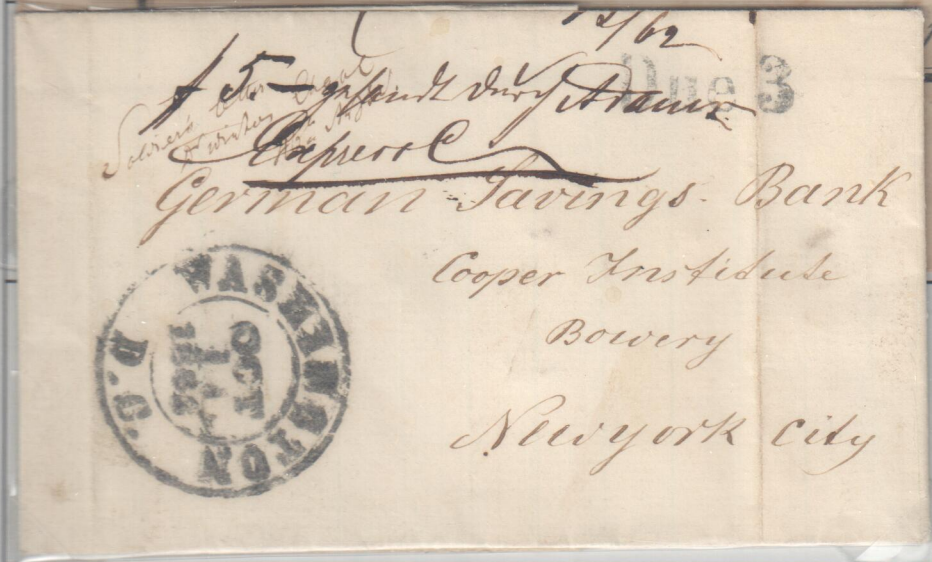 /62
Due 3
$ 5 — gesandt durch Adams
Express C
Soldier's letter
German Savings Bank
Cooper Institute
Bowery
New york City
WASHINGTON D.C.
OCT
1862